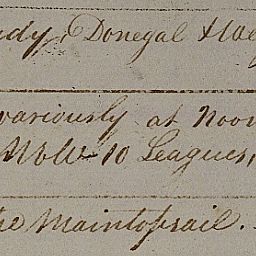 Donegal
variously at Noon
NbW 10 Leagues,
the Maintopsail.